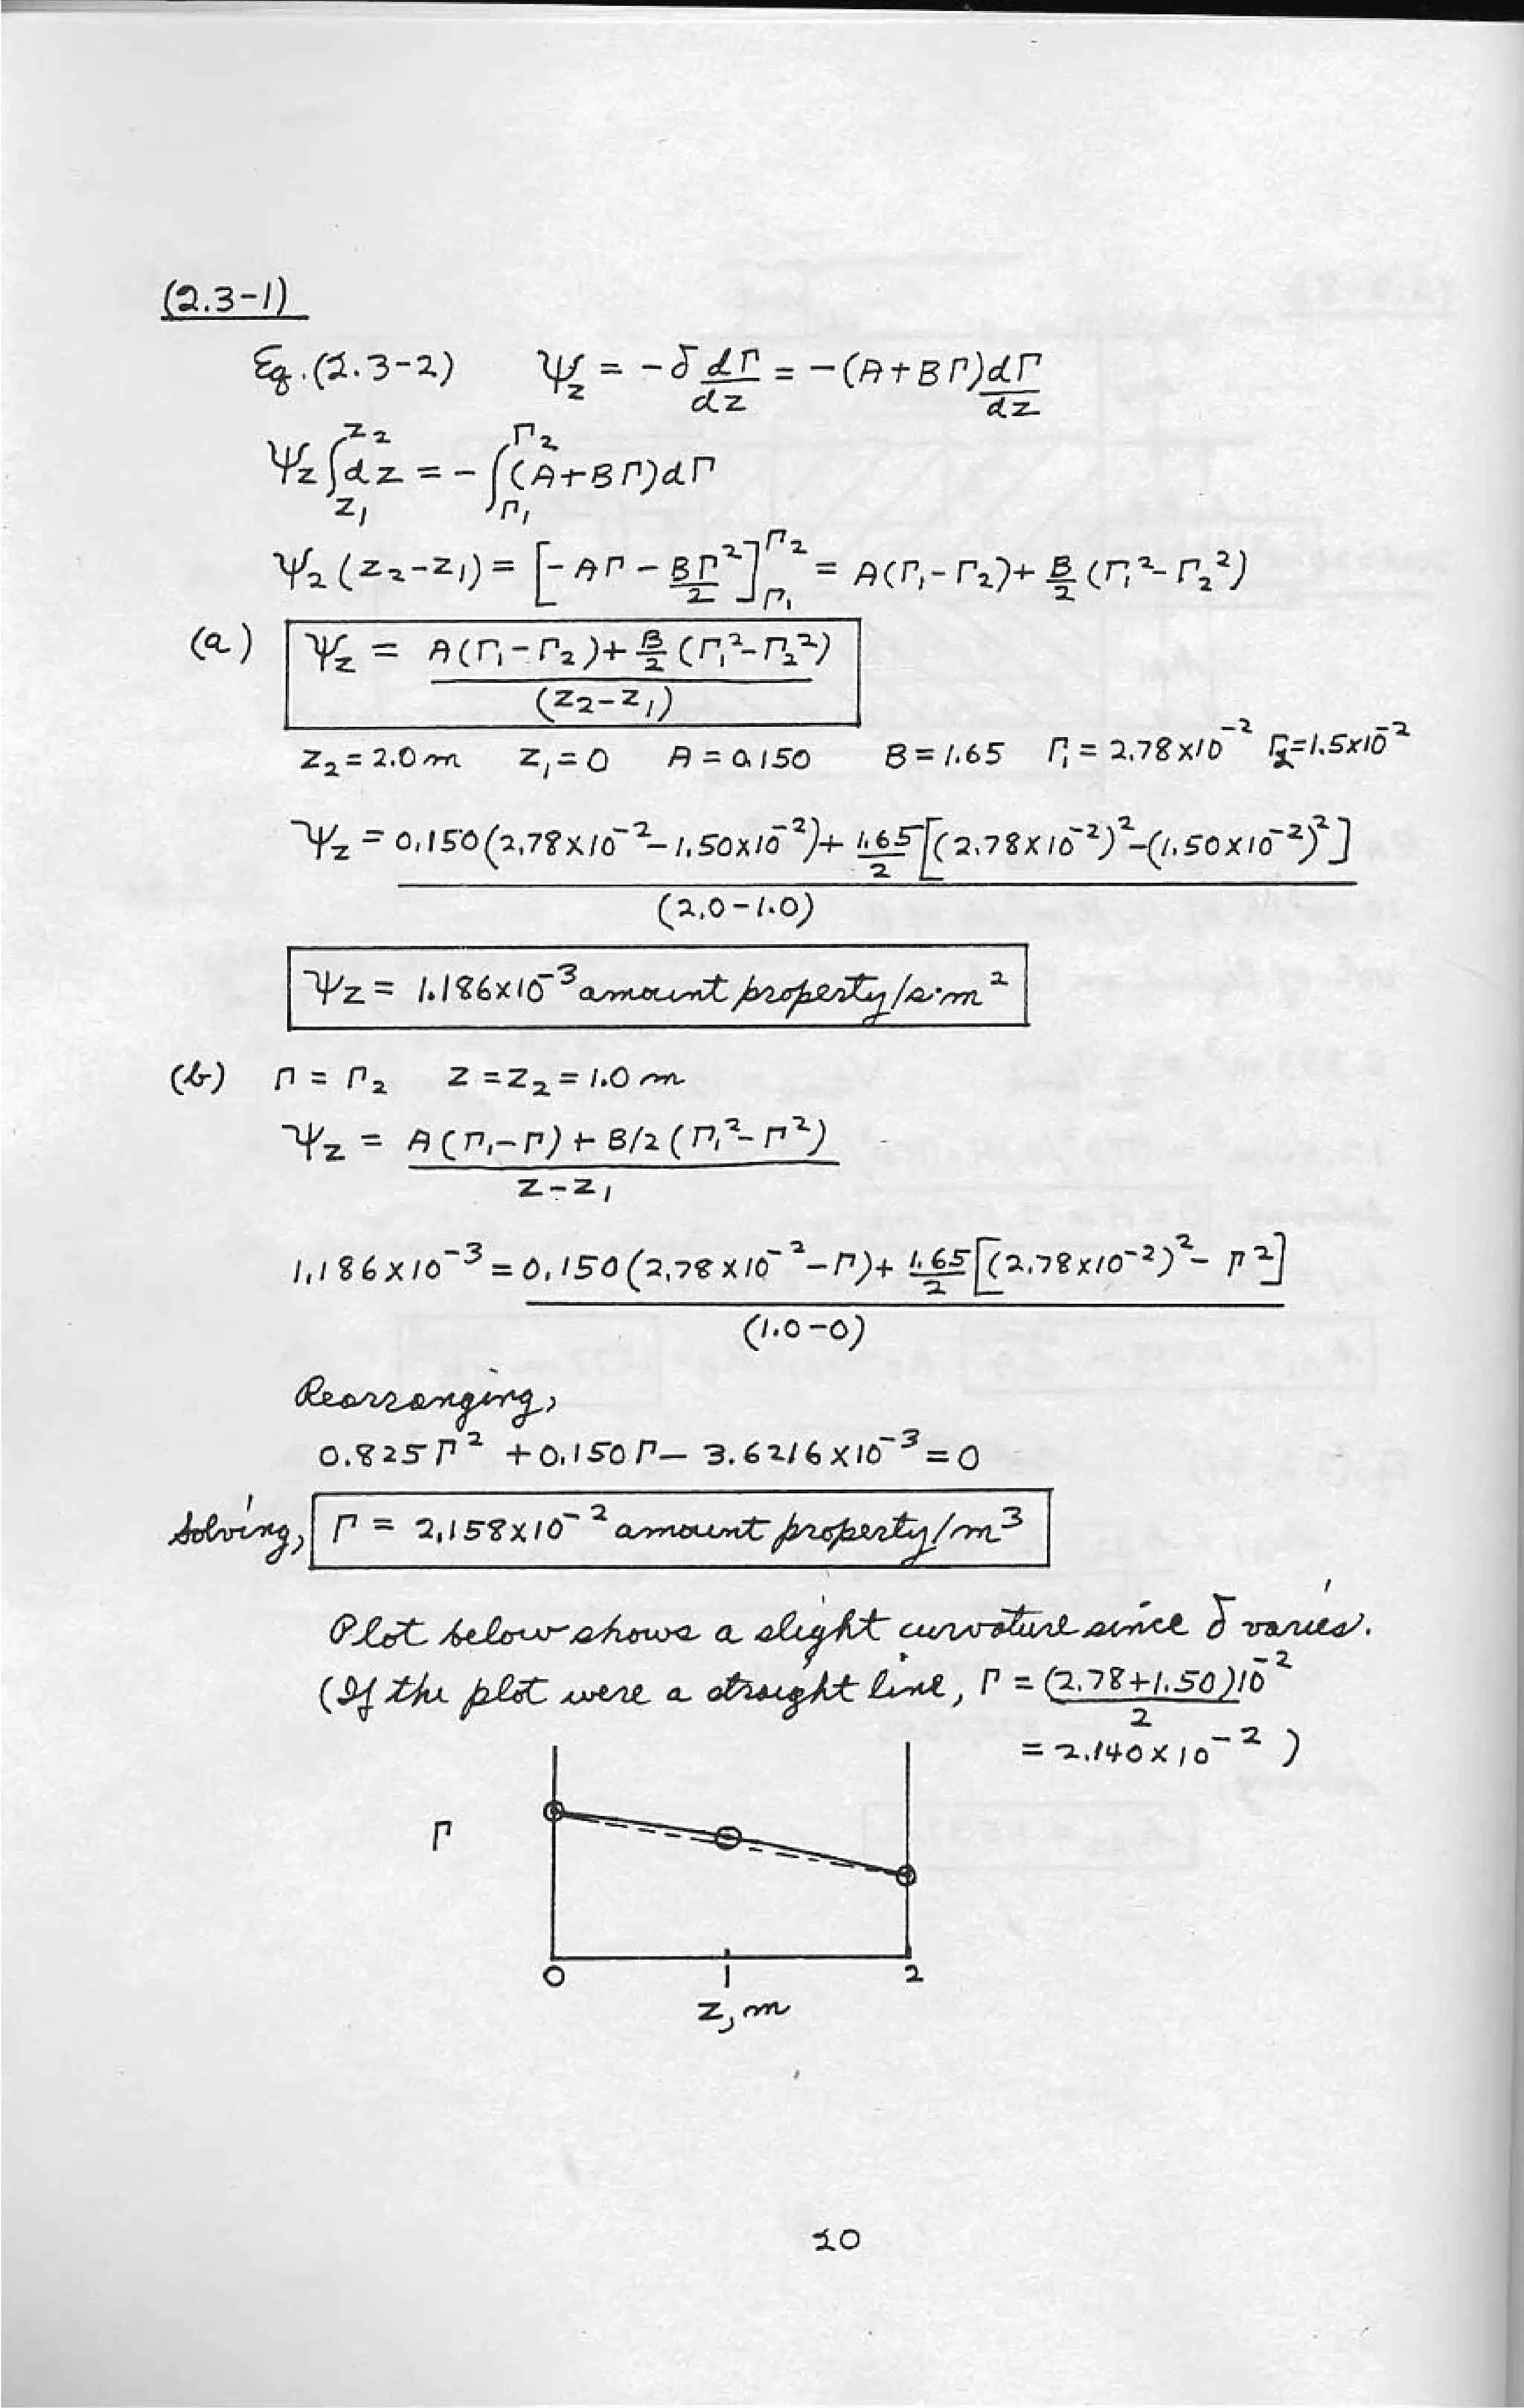 (2.3-1)
Eq. (2.3-2) Ψz = -δ dΓ/dz = -(A+BΓ)dΓ/dz
Ψz ∫_{z1}^{z2} dz = - ∫_{Γ1}^{Γ2} (A+BΓ)dΓ
Ψ2 (z2-z1) = [-AΓ - BΓ²/2]_{Γ1}^{Γ2} = A(Γ1-Γ2)+ B/2 (Γ1²-Γ2²)
(a) Ψz = A(Γ1-Γ2)+ B/2 (Γ1²-Γ2²) / (z2-z1)
z2 = 2.0 m z1 = 0 A = 0.150 B = 1.65 Γ1 = 2.78x10⁻² Γ2=1.5x10⁻²
Ψz = 0.150(2.78x10⁻²-1.50x10⁻²)+ 1.65/2 [(2.78x10⁻²)²-(1.50x10⁻²)²] / (2.0-1.0)
Ψz = 1.186x10⁻³ amount property/s·m²
(b) Γ = Γ2 z = z2 = 1.0 m
Ψz = A(Γ1-Γ) + B/2 (Γ1²-Γ²) / z-z1
1.186x10⁻³ = 0.150(2.78x10⁻²-Γ)+ 1.65/2 [(2.78x10⁻²)²- Γ²] / (1.0-0)
Rearranging,
0.825Γ² +0.150Γ- 3.6216x10⁻³ = 0
Solving, Γ = 2.158x10⁻² amount property/m³
Plot below shows a slight curvature since δ varies.
(If the plot were a straight line, Γ = (2.78+1.50)10⁻²/2
= 2.140x10⁻² )
Γ
0 1 2
z, m
10